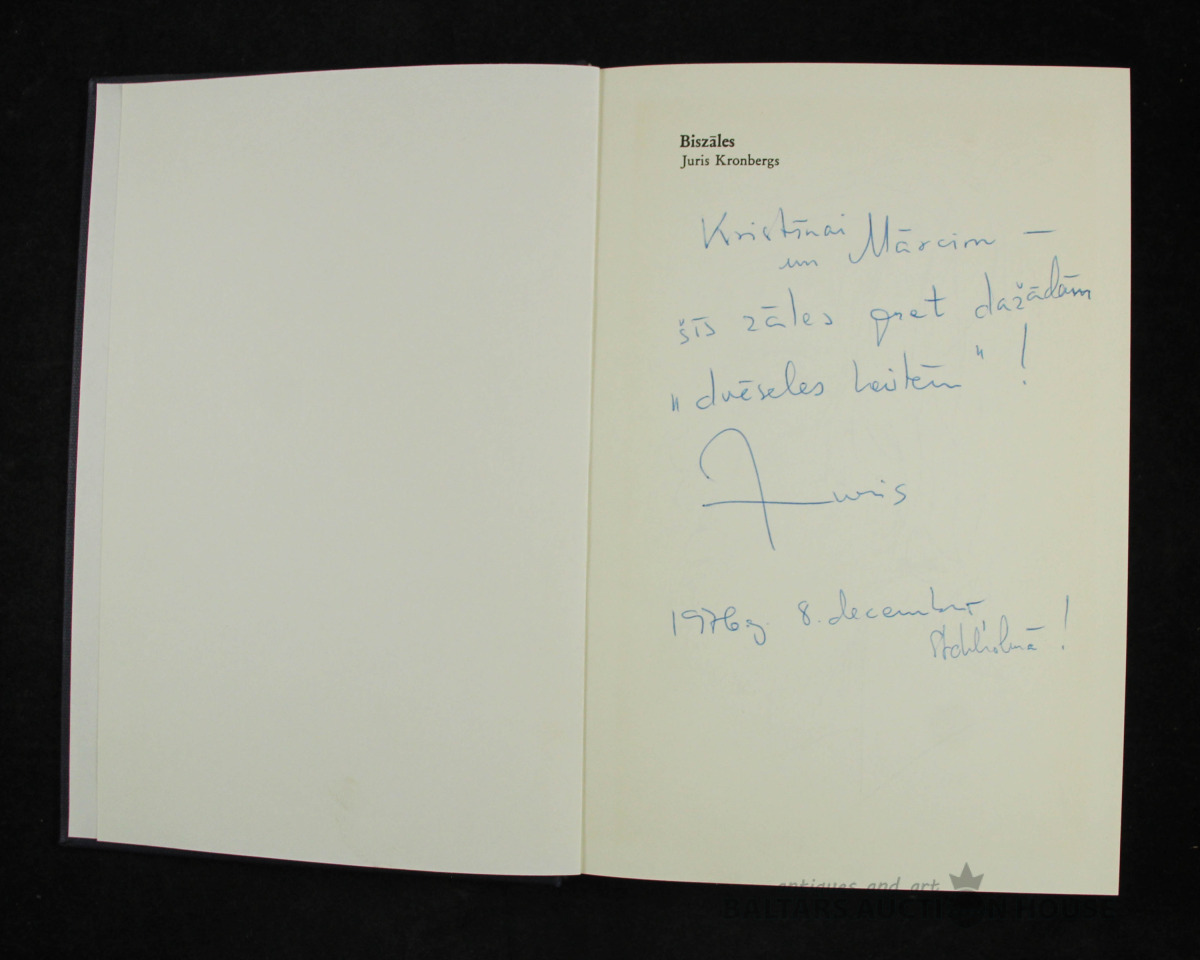 Biszāles
Juris Kronbergs
Kristīnai Mārcim —
un
šīs zāles pret dažādām
"dvēseles kaitēm"!
Juris
1976g. 8. decembrī,
Stokholmā!
antiques and art
BALTARS AUCTION HOUSE